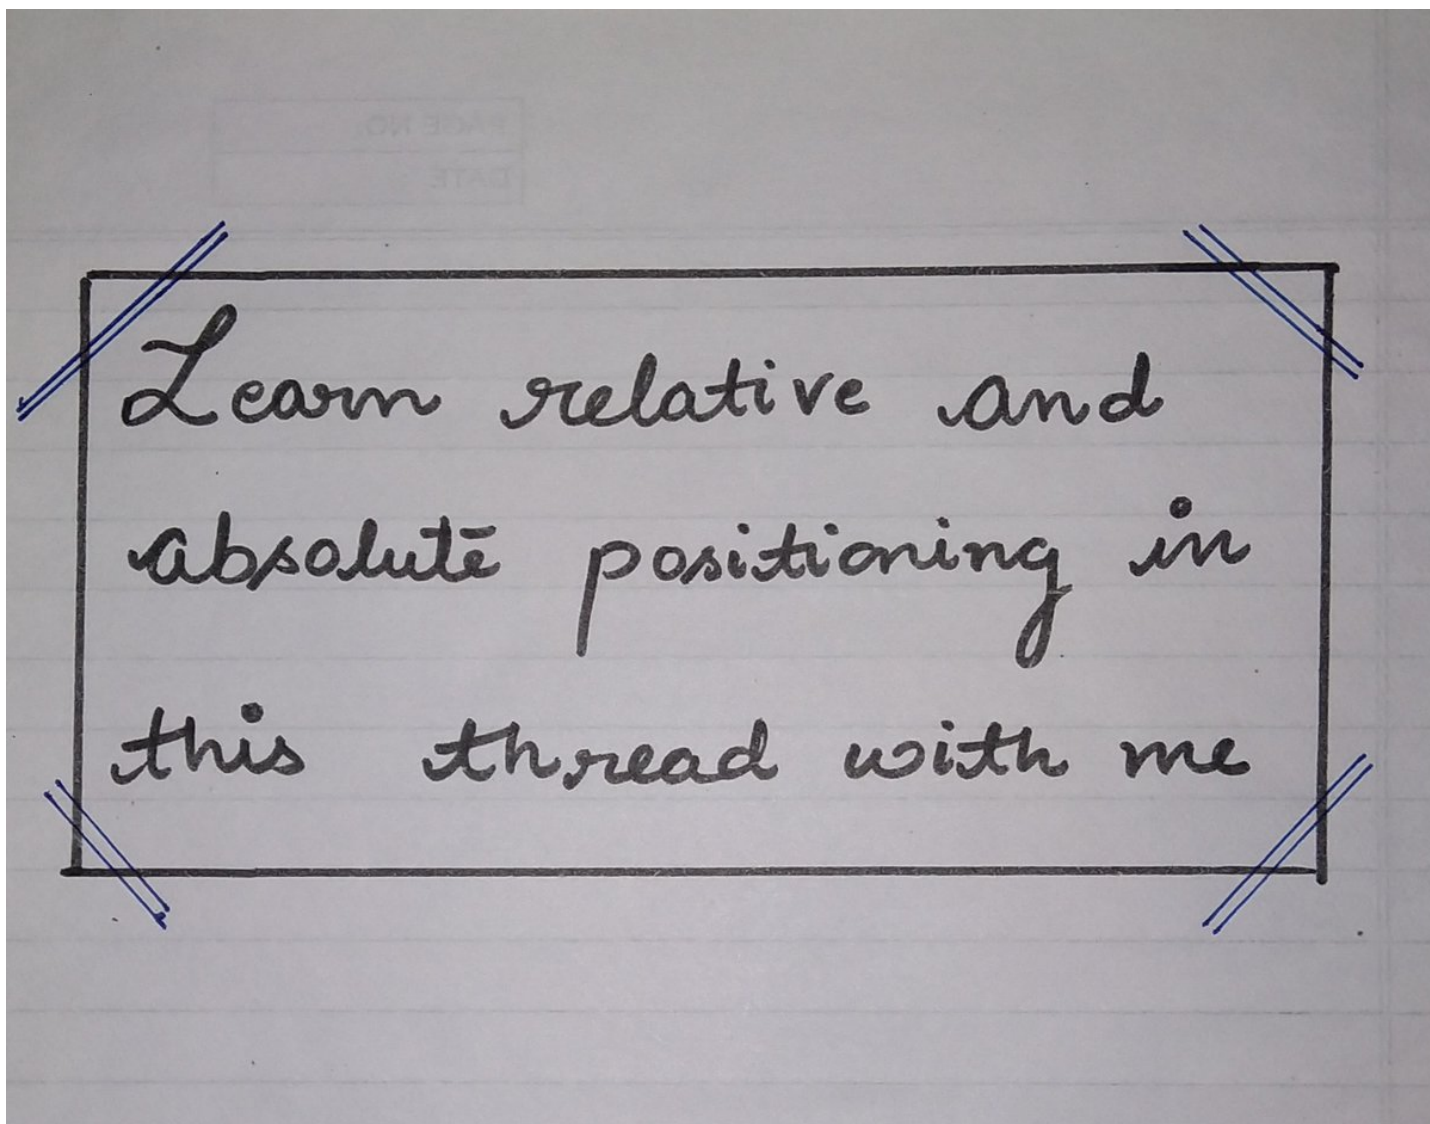 PAGE NO.
DATE
Learn relative and
absolute positioning in
this thread with me